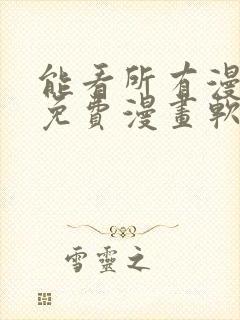 能看所有漫
免費漫畫軟
雪靈之